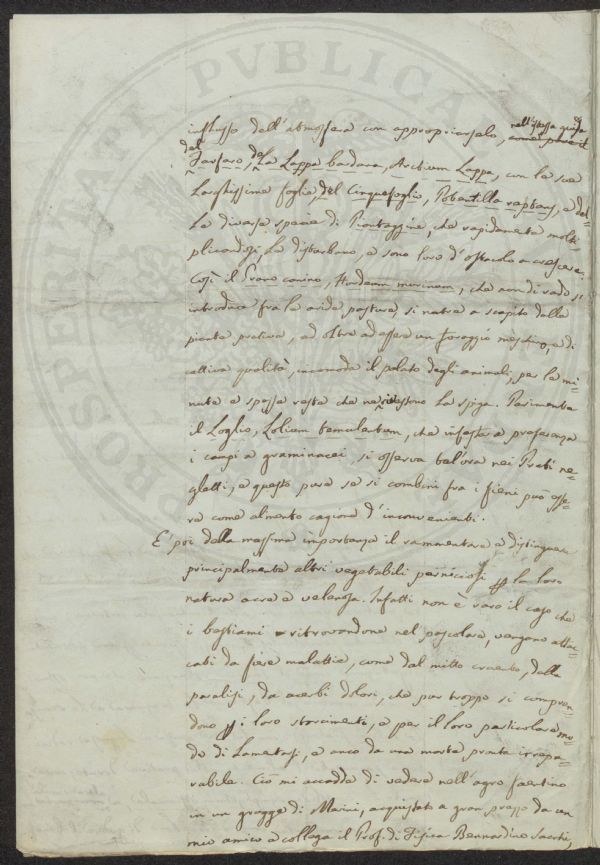 PROSPERITATI PVBLICAE
influsso dell'atmosfera con appropriarselo, nell'istessa guisa
del Farfaro, della Lappa bardana, Arctium Lappa, con le sue
larghissime foglie, del Cinquefoglio, Potentilla reptans, e del-
le diverse specie di Piantaggine, che rapidamente molti-
plicandosi, le disturbano, e sono loro d'ostacolo a crescere.
Così il Grano canino, Hordeum murinum, che non di rado si
introduce fra le aride pasture, si nutre a scapito delle
piante prative, ed oltre ad essere un foraggio meschino, e di
cattiva qualità, incomoda il palato degli animali, per le mi-
nute e spesse reste che ne vestono la spiga. Parimente
il Loglio, Lolium temulentum, che infesta a preferenza
i campi a graminacei, si osserva talora nei Prati ne-
gletti, e questo pure se si combini fra i fieni può esse-
re come alimento cagione d'inconvenienti.
E' poi della massima importanza il rammentare e distinguere
principalmente altri vegetabili perniciosi p la loro
natura acre e velenosa. Infatti non è raro il caso che
i bestiami ritrovandone nel pascolare, vengono attac-
cati da fiere malattie, come dal mitto cruento, dalla
paralisi, da acerbi dolori, che pur troppo si compren-
dono p i loro storcimenti, e per il loro particolare mo-
do di lamentarsi, e anco da una morte pronta irrepa-
rabile. Ciò mi accadde di vedere nell'agro faentino
in un gregge di Merini, acquistato a gran prezzo da un
mio amico e collega il Prof. di Fisica Bernardino Sacchi,